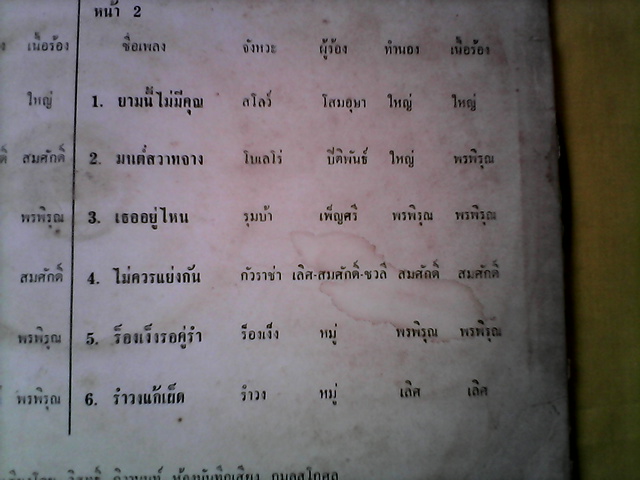 หน้า 2
เนื้อร้อง ชื่อเพลง จังหวะ ผู้ร้อง ทำนอง เนื้อร้อง
ใหญ่ 1. ยามนี้ไม่มีคุณ สโลว์ โสมอุษา ใหญ่ ใหญ่
สมศักดิ์ 2. มนต์สวาทจาง โบเลโร่ ปีติพันธ์ ใหญ่ พรพิรุณ
พรพิรุณ 3. เธออยู่ไหน รุมบ้า เพ็ญศรี พรพิรุณ พรพิรุณ
สมศักดิ์ 4. ไม่ควรแย่งกัน กัวราช่า เลิศ-สมศักดิ์-ชวลี สมศักดิ์ สมศักดิ์
พรพิรุณ 5. ร็องเง็งรอคู่รำ ร็องเง็ง หมู่ พรพิรุณ พรพิรุณ
พรพิรุณ 6. รำวงแก้เผ็ด รำวง หมู่ เลิศ เลิศ